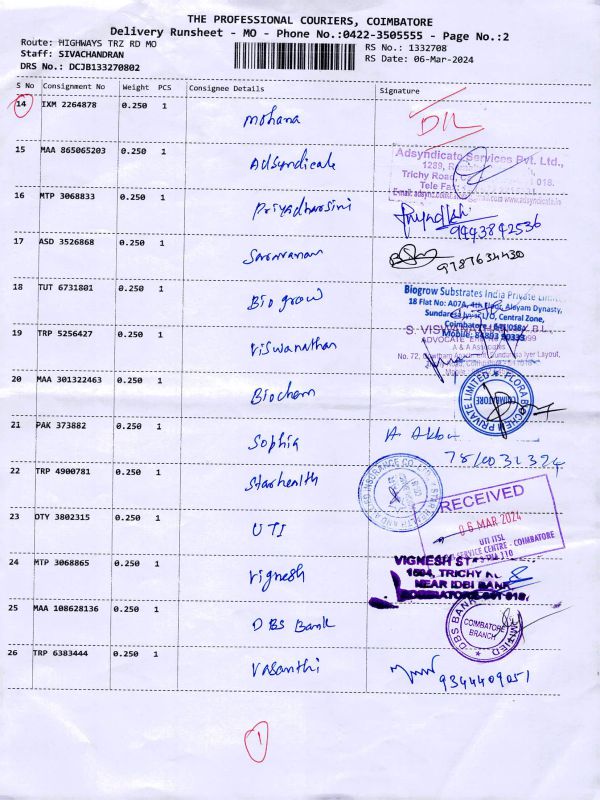 THE PROFESSIONAL COURIERS, COIMBATORE
Delivery Runsheet - MO - Phone No.:0422-3505555 - Page No.:2
Route: HIGHWAYS TRZ RD MO
RS No.: 1332708
Staff: SIVACHANDRAN
RS Date: 06-Mar-2024
DRS No.: DCJB133270802
S No Consignment No Weight PCS Consignee Details Signature
14 IXM 2264878 0.250 1 Mohana
15 MAA 865065203 0.250 1 Adsyndicate
Adsyndicate Services Pvt. Ltd.,
1289,
Trichy Road, 018.
Tele Fax:
www.adsyndicate.in
16 MTP 3068833 0.250 1 Priyadharsini
9443842536
17 ASD 3526868 0.250 1 Saravanan
9787634430
18 TUT 6731801 0.250 1 Bio grow
Biogrow Substrates India Private Limited
18 Flat No: A07A, 4th Floor, Aisyam Dynasty,
Central Zone,
Coimbatore
Mobile:
19 TRP 5256427 0.250 1 Viswanathan
ADVOCATE
A & A Associates
No. 72, Layout,
20 MAA 301322463 0.250 1 Biochem
FLORA BIOCHEM PRIVATE LIMITED
COIMBATORE
21 PAK 373882 0.250 1 Sophia
22 TRP 4900781 0.250 1 Starhealth
23 DTY 3802315 0.250 1 UTI
RECEIVED
06 MAR 2024
UTI ITSL
SERVICE CENTRE - COIMBATORE
24 MTP 3068865 0.250 1 Vignesh
VIGNESH
1604, TRICHY
NEAR IDBI BANK
25 MAA 108628136 0.250 1 DBS Bank
DBS BANK
COIMBATORE
BRANCH
26 TRP 6383444 0.250 1 Vasanthi
9344409051
1